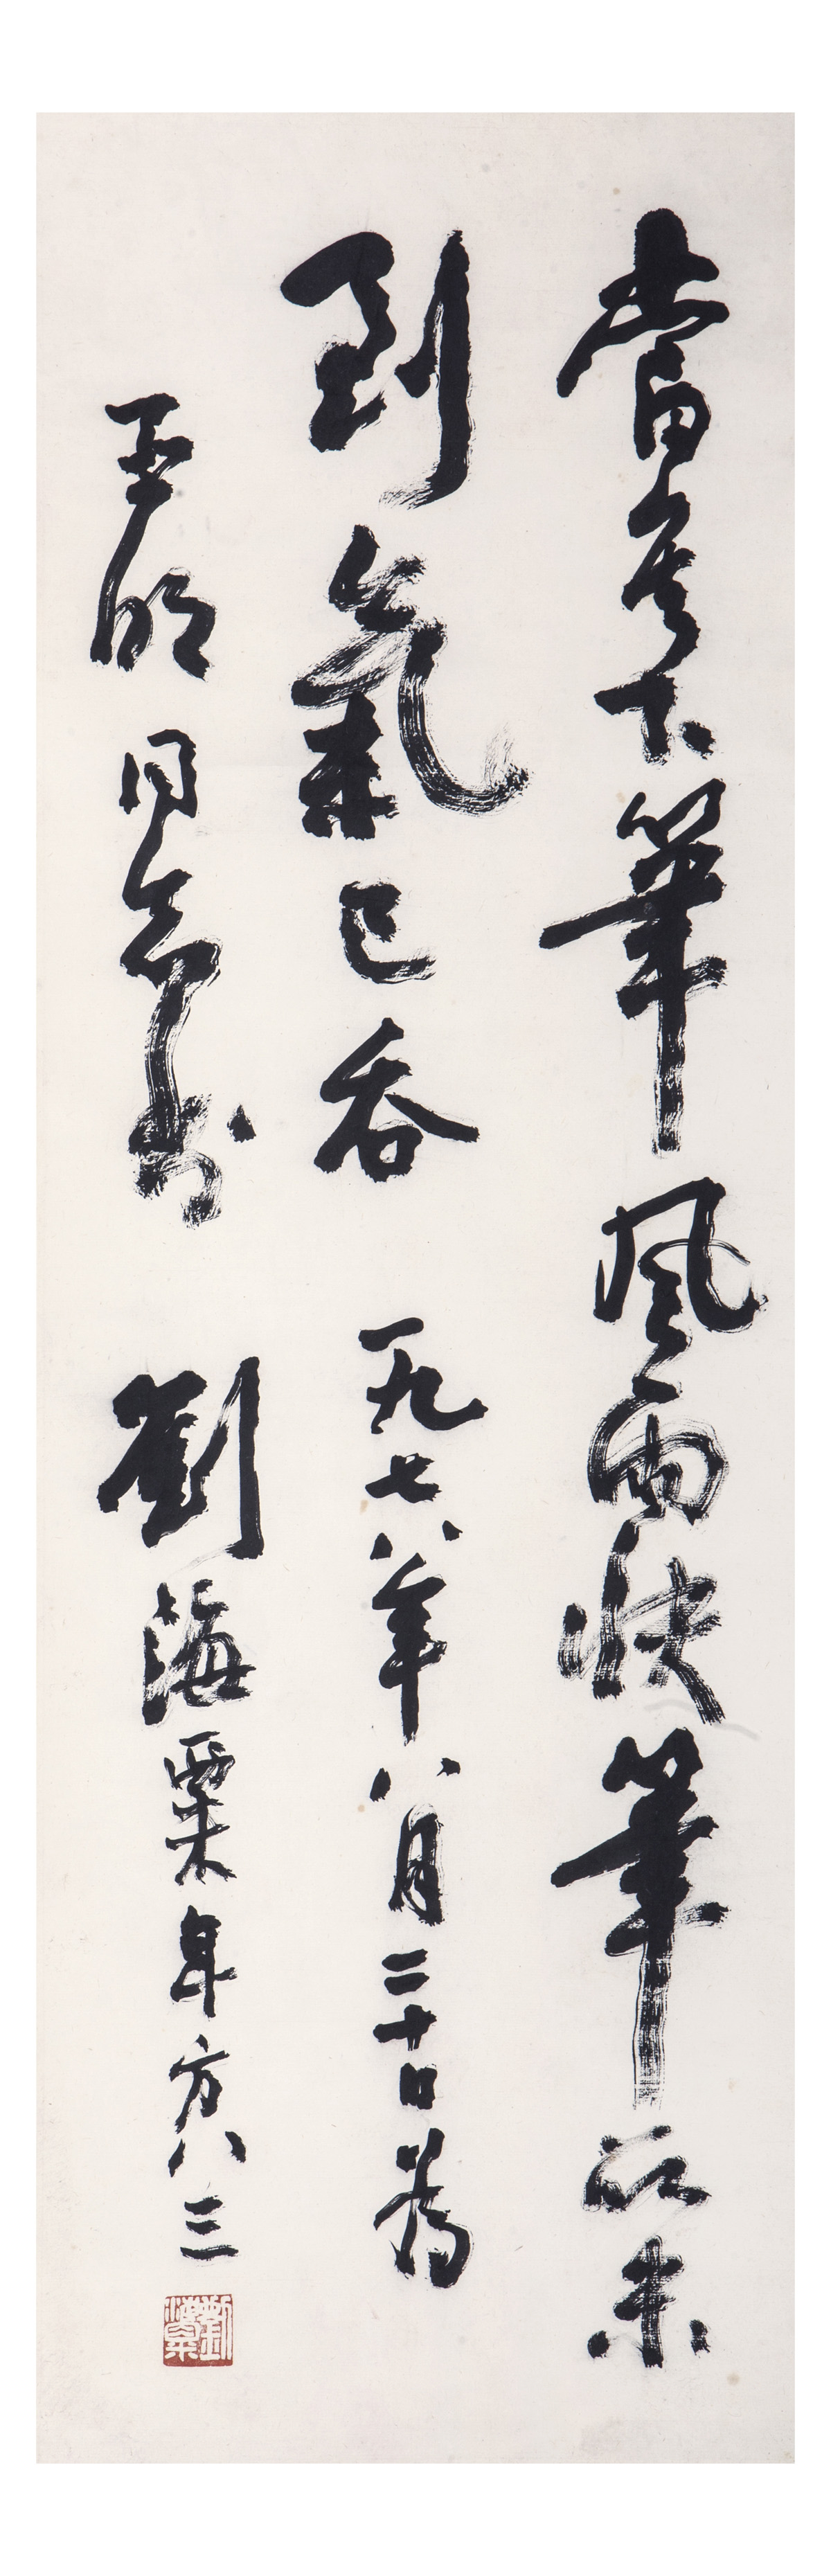 當其下筆風雨快筆所未
到氣已吞 一九七八年八月二十日為
亚明同志書 劉海粟年方八三
劉海粟